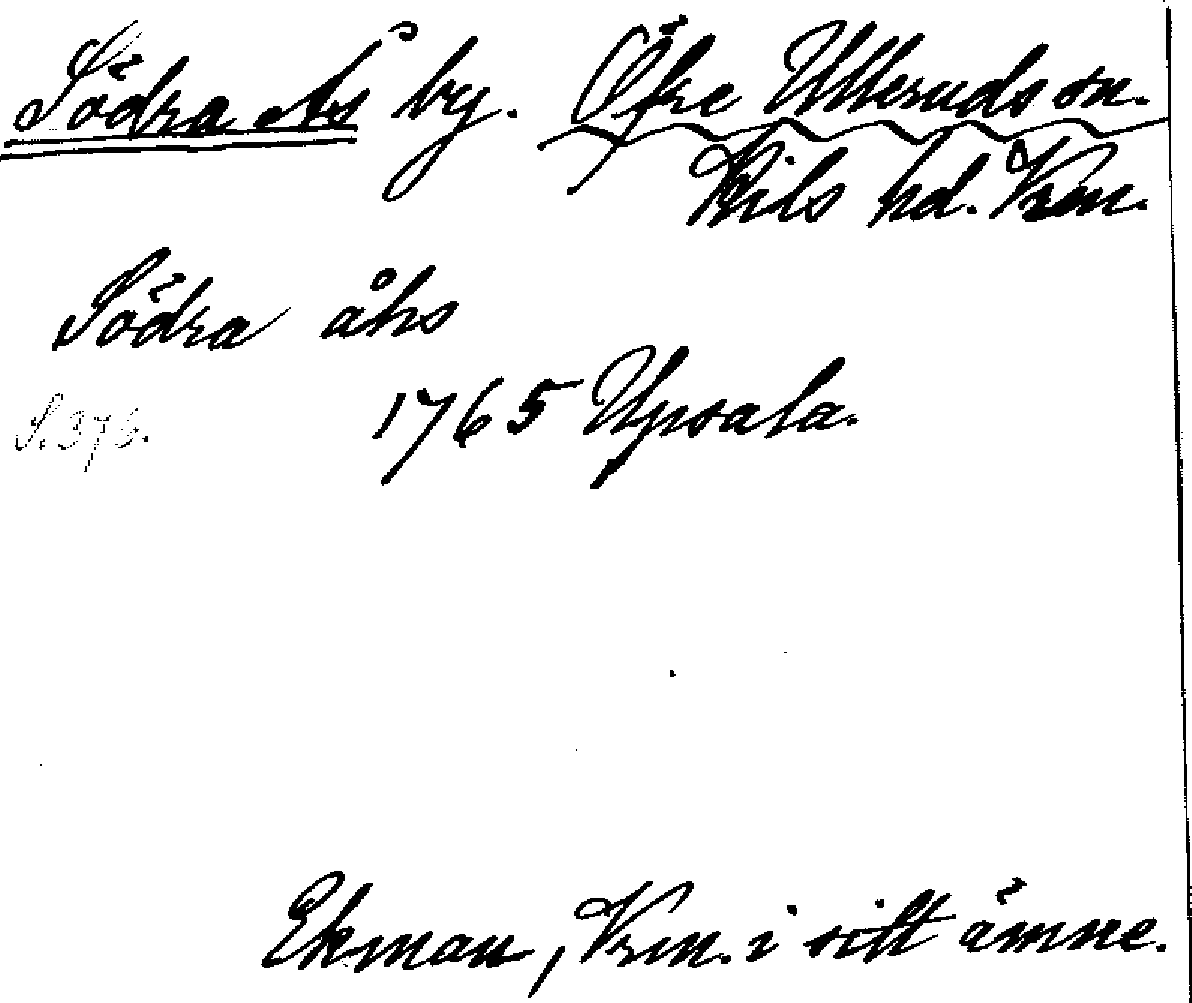 Södra Ås by. Öfre Ulleruds sn.
Kils hd. Vrm.
Södra åhs
1765 Upsala.
S. 373.
Ekman, Vrm. i sitt ämne.